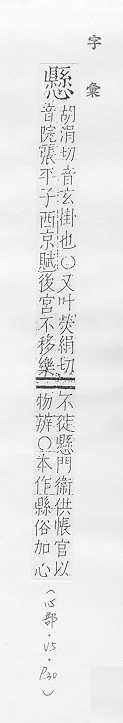 字彙
懸
胡涓切音玄掛也○又叶熒絹切
音院張平子西京賦後宮不移樂
不徙懸門衞供帳官以
物辨○本作縣俗加心
(心部·V5·P.30)